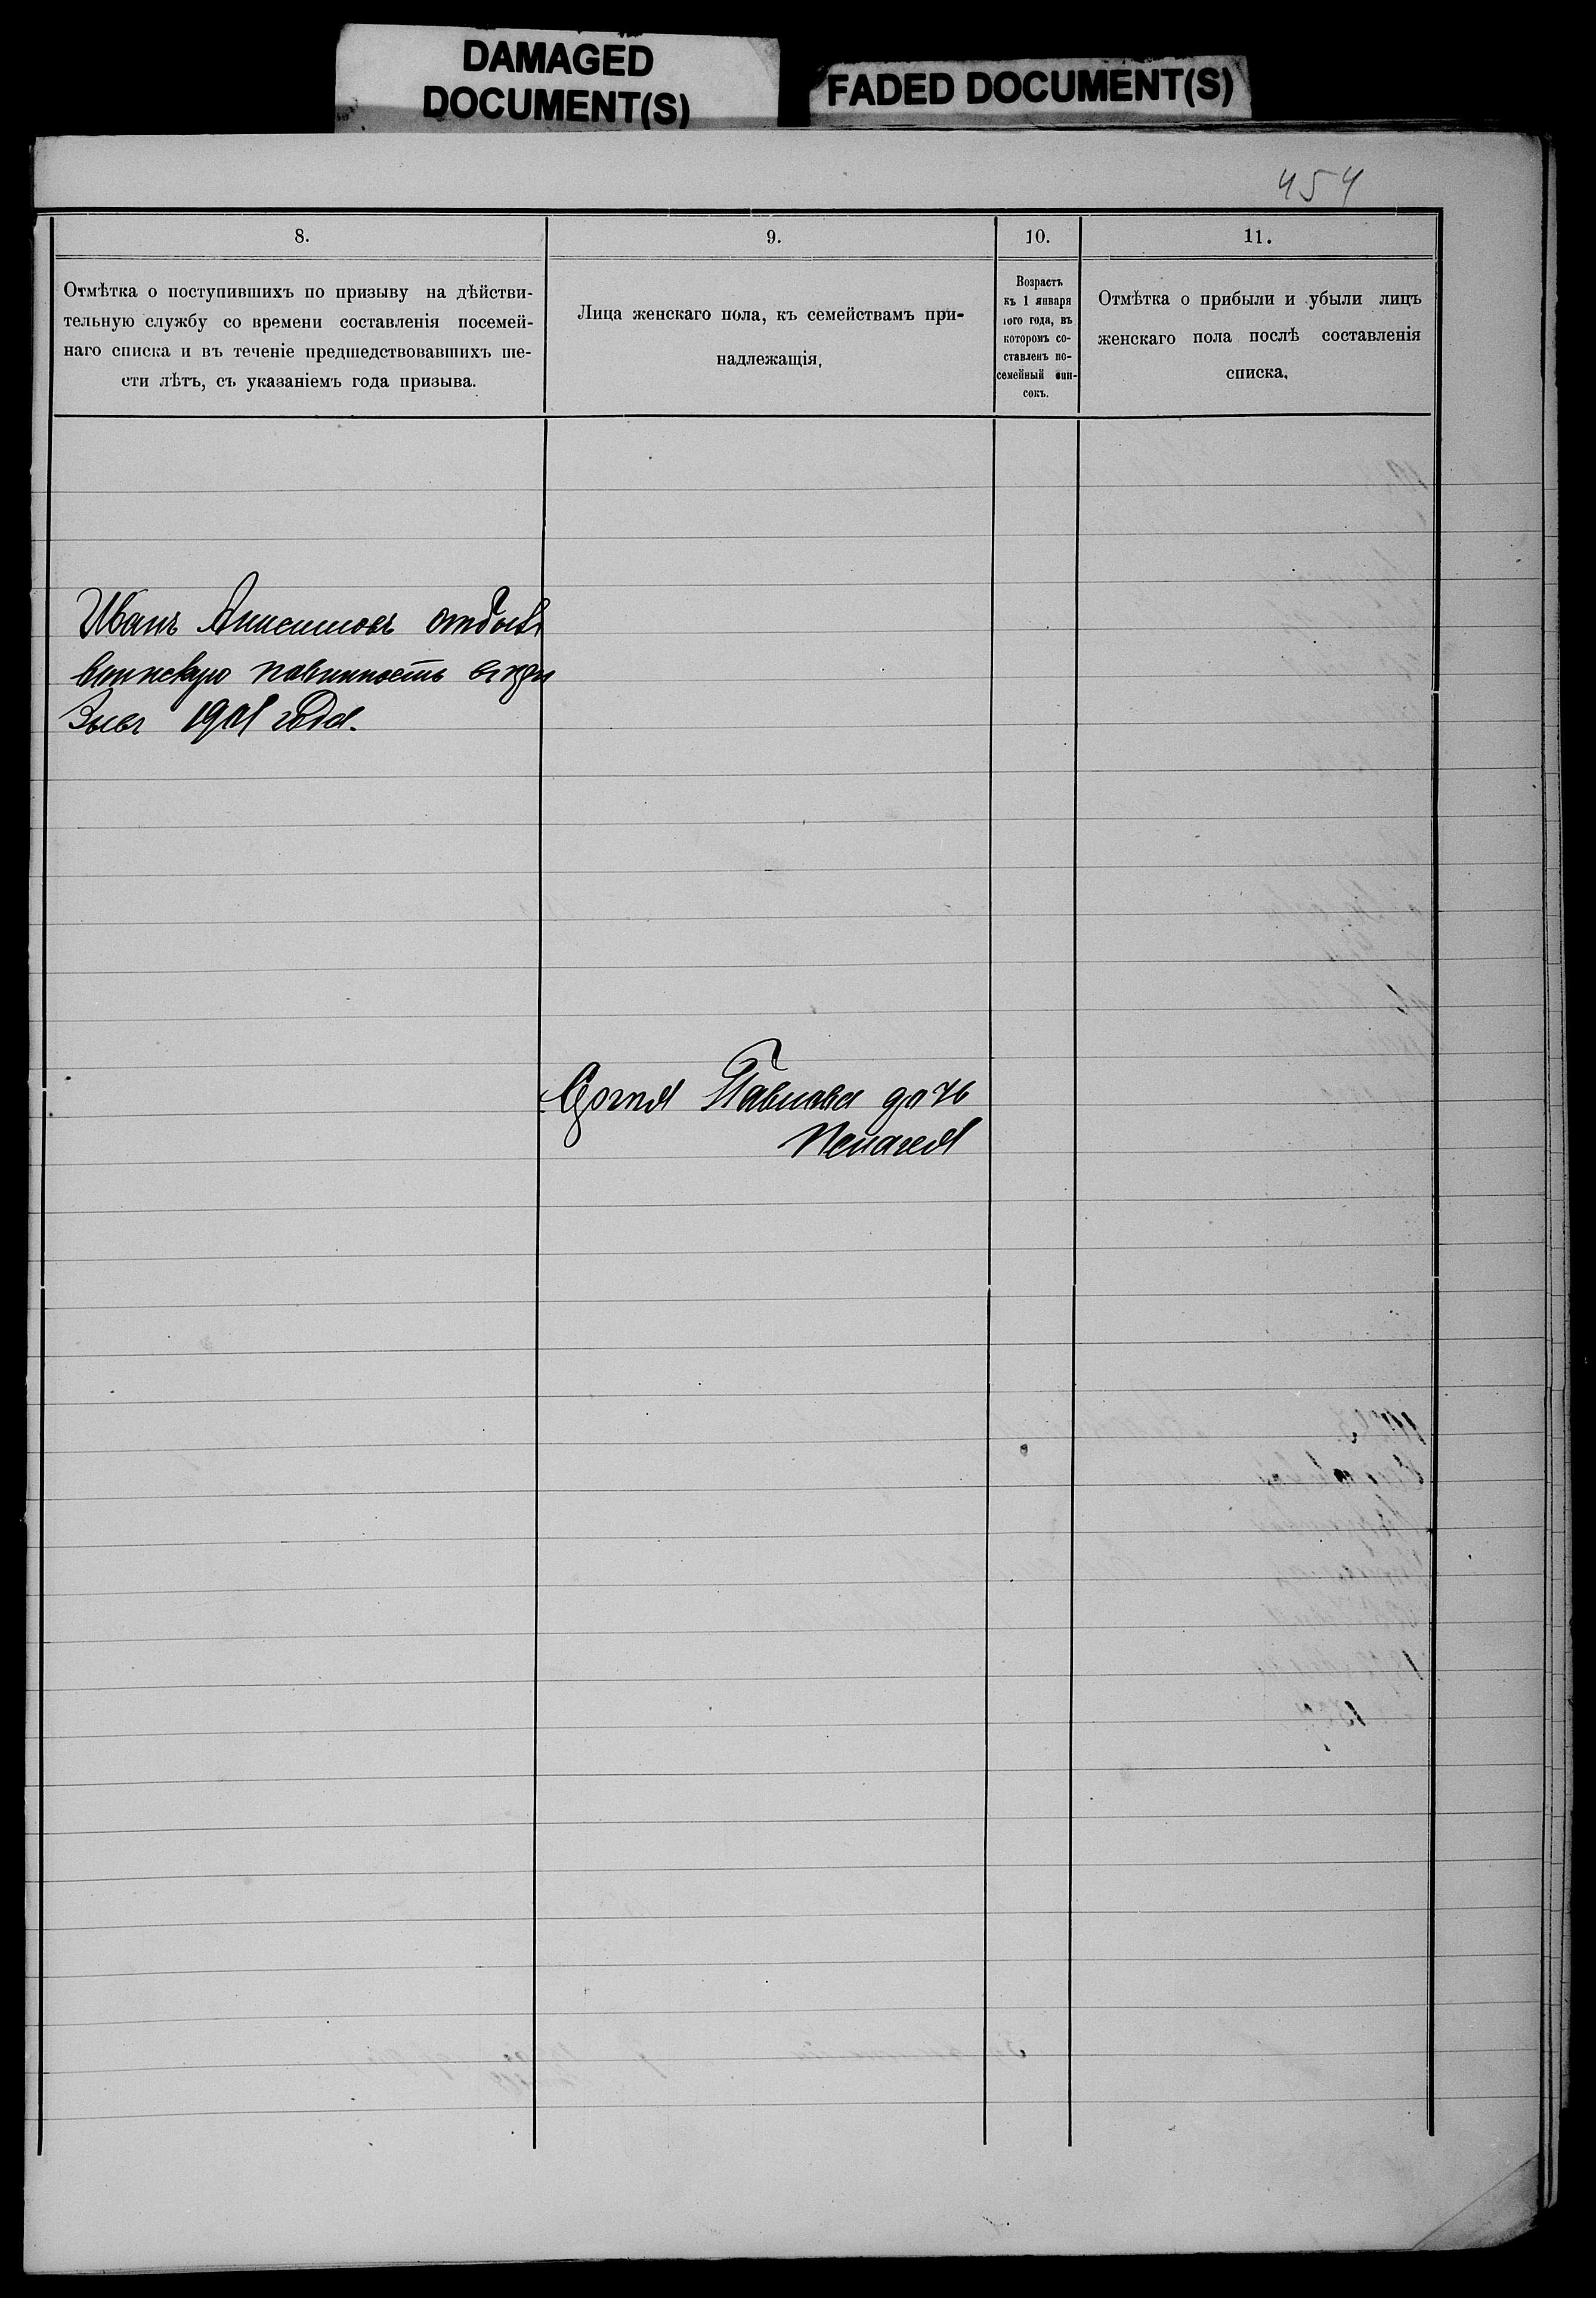 DAMAGED
DOCUMENT(S)
FADED DOCUMENT(S)
454
8.
9.
10.
11.
Отмѣтка о поступившихъ по призыву на дѣйстви-
тельную службу со времени составленія посемей-
наго списка и въ теченіе предшедствовавшихъ ше-
сти лѣтъ, съ указаніемъ года призыва.
Лица женскаго пола, къ семействамъ при-
надлежащія,
Возрастъ
къ 1 января
того года, въ
которомъ со-
ставленъ по-
семейный спи-
сокъ.
Отмѣтка о прибыли и убыли лицъ
женскаго пола послѣ составленія
списка,
Иванъ Анисимовъ отбылъ
воинскую павинность въ при
зывъ 1901 года.
Павлава дочь
Пелагея